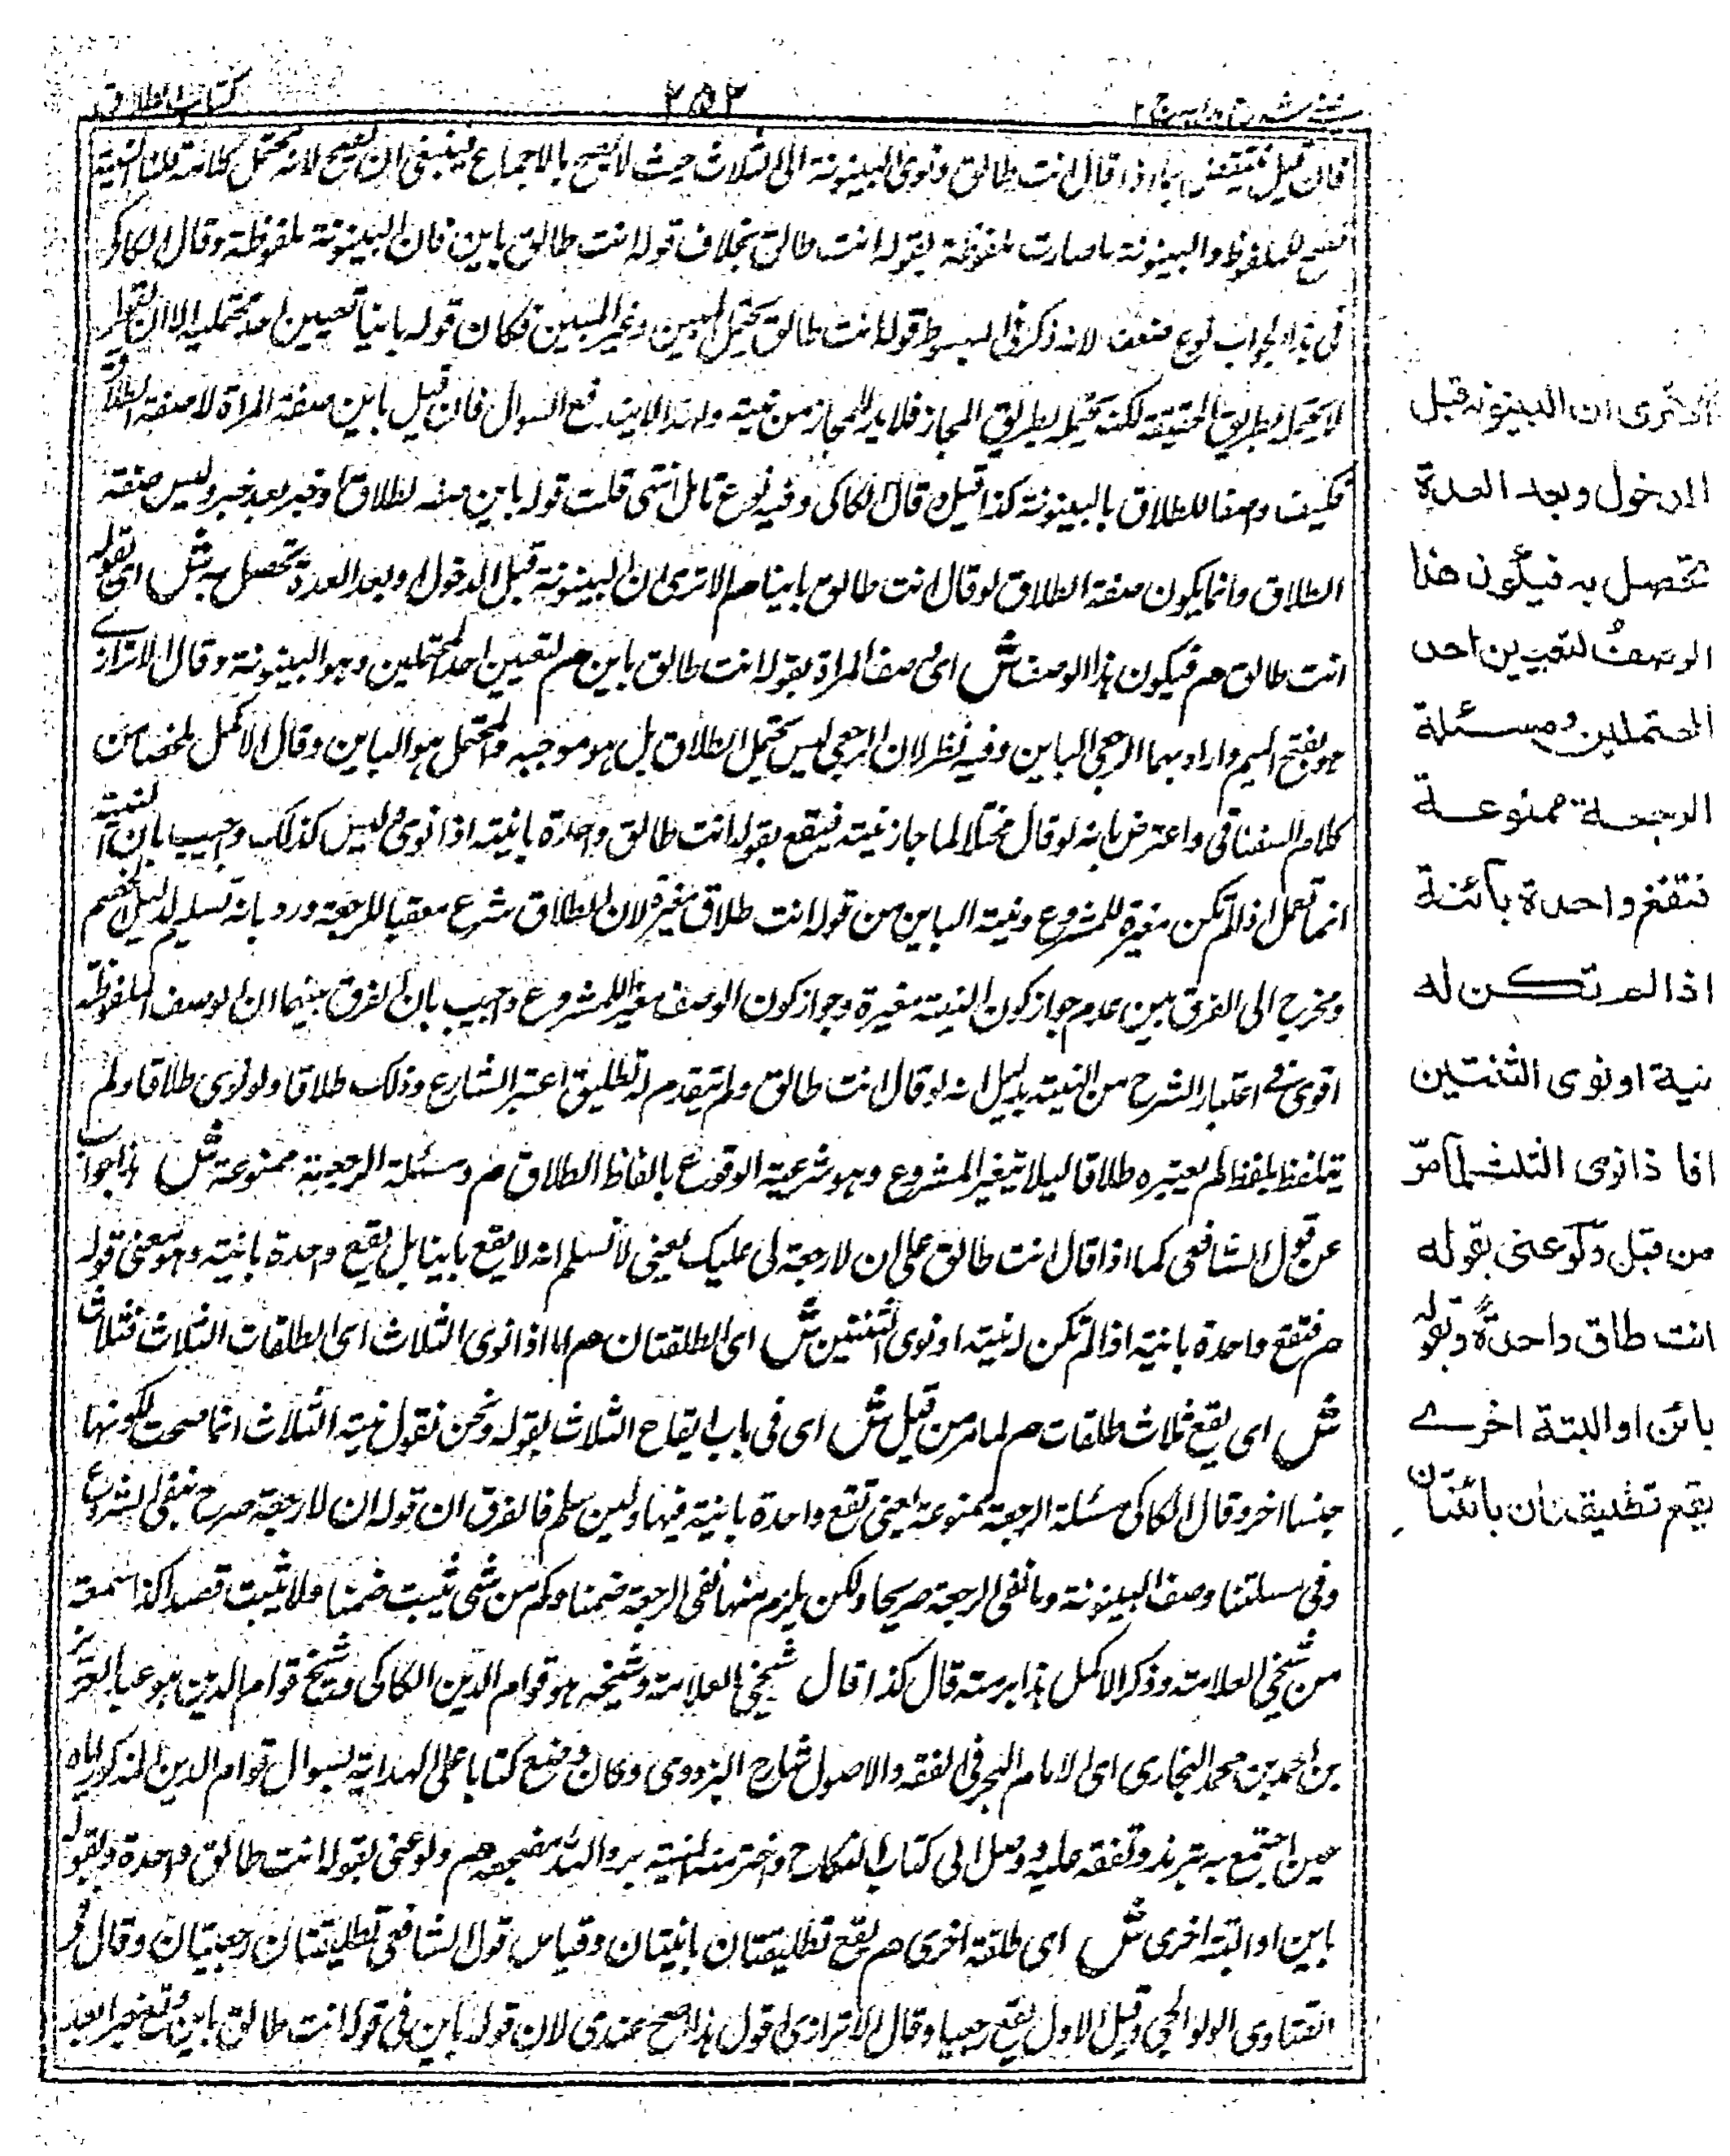 كتاب الطلاق
٢٥٢
فان قيل ينتقض بما اذا قال انت طالق ونوى البينونة الى الثلاث حيث لا يصح بالاجماع ينبغى ان يصح لانه محتمل كلامه قلنا النية
للملفوظ والبينونة ما صارت ملفوظة بقوله انت طالق بخلاف قوله انت طالق باين فان البينونة ملفوظة وقال الكاكى
فى هذا الجواب نوع ضعف لانه ذكر فى المبسوط قوله انت طالق يحتمل المبين وغير المبين فكان قوله باينا تعيين احد محتمليه الا ان يقال
لا يحتمله بطريق الحقيقة لكنه يحتمله بطريق المجاز فلا بد للمجاز من نية ولهذا لا يندفع السوال فان قيل باين صفة المراة لا صفة الطلاق
فكيف وصفا للطلاق بالبينونة كذا قيل قال الكاكى وفيه نوع تامل انتهى قلت قوله باين صفة لطلاق او خبر بعد خبر وليس صفة
الطلاق وانما يكون صفة الطلاق لو قال انت طالق باينا هم الا ترى ان البينونة قبل الدخول او بعد العدة تحصل به ش اى بقوله
انت طالق هم فيكون هذا الوصف ش اى وصف المراة بقوله انت طالق باين هم لتعيين احد المحتملين وهو البينونة وقال الاترازى
هو بفتح الميم واراد بهما الرجعى والباين وفيه نظر لان الرجعى ليس محتمل الطلاق بل هو موجبه والمحتمل هو الباين وقال الاكمل ملخصا من
كلام السغناقى واعترض بانه لو قال محتملا لما جاز نيته فيقع بقوله انت طالق واحدة باينة اذا نوى وليس كذلك واجيب بان النية
انما تعمل اذا لم تكن مغيرة للمشروع ونية الباين من قوله انت طلاق مغيرة لان الطلاق شرع معقبا للرجعة ورد بانه تسليم لدليل الخصم
ومخرج الى الفرق بين عدم جواز كون النية مغيرة وجواز كون الوصف مغيرا للمشروع واجيب بان الفرق بينهما ان الوصف الملفوظ
اقوى فى اعتبار الشرع من النية بدليل انه لو قال انت طالق ولم يتقدم له تطليق اعتبر الشارع وذلك طلاقا ولو نوى طلاقا ولم
يتلفظ بلفظ لم يعتبره طلاقا ليلا يتغير المشروع وهو شرعية الوقوع بالفاظ الطلاق هم ومسئلة الرجعة ممنوعة ش هذا جواب
عن قول الشافعى كما اذا قال انت طالق على ان لا رجعة لى عليك يعنى لا نسلم انه لا يقع باينا بل يقع واحدة باينة وهو معنى قوله
هم فتقع واحدة باينة اذا لم تكن له نية او نوى الثنتين ش اى الطلقتان هم اما اذا نوى الثلاث اى الطلقات الثلاث فثلاث
ش اى يقع ثلاث طلقات هم لما مر من قبل ش اى فى باب ايقاع الثلاث بقوله ونحن نقول نية الثلاث انما صحت لكونها
جنسا اخر وقال الكاكى مسئلة الرجعة ممنوعة يعنى تقع واحدة باينة فيها ولئن سلم فالفرق ان قوله ان لا رجعة صرح بنفى المشروع
وفى مسلتنا وصف البينونة وما نفى الرجعة صريحا ولكن يلزم منها نفى الرجعة ضمنا وكم من شى يثبت ضمنا ولا يثبت قصدا كذا سمعته
من شيخى العلامة وذكر الاكمل هذا برمته قال كذا قال شيخى العلامة وشيخه هو قوام الدين الكاكى وشيخ قوام الدين هو عبد العزيز
بن احمد بن محمد البخارى اى الامام البحر فى الفقه والاصول شارح البزدوى وكان وضع كتابا على الهداية بسوال قوام الدين المذكور اياه
حين اجتمع به بترمذ وتفقه عليه ووصل الى كتاب النكاح واخترمته المنية هم ولو عنى بقوله انت طالق واحدة وبقوله
باين او البتة اخرى ش اى طلقة اخرى هم يقع تطليقتان باينتان وقياس قول الشافعى تطليقتان رجعيتان وقال فى
الفتاوى الولوالجى وقيل الاول يقع رجعيا وقال الاترازى اقول هذا اصح عندى لان قوله باين فى قوله انت طالق باين وقع خبرا بعد
الا ترى ان البينونة قبل
الدخول وبعد العدة
تحصل به فيكون هذا
الوصف لتعيين احد
المحتملين ومسئلة
الرجعة ممنوعة
فتقع واحدة بائنة
اذا لم تكن له
نية او نوى الثنتين
اما اذا نوى الثلث لما مر
من قبل ولو عنى بقوله
انت طالق واحدة وبقوله
بائن او البتة اخرى
يقع تطليقتان بائنتان